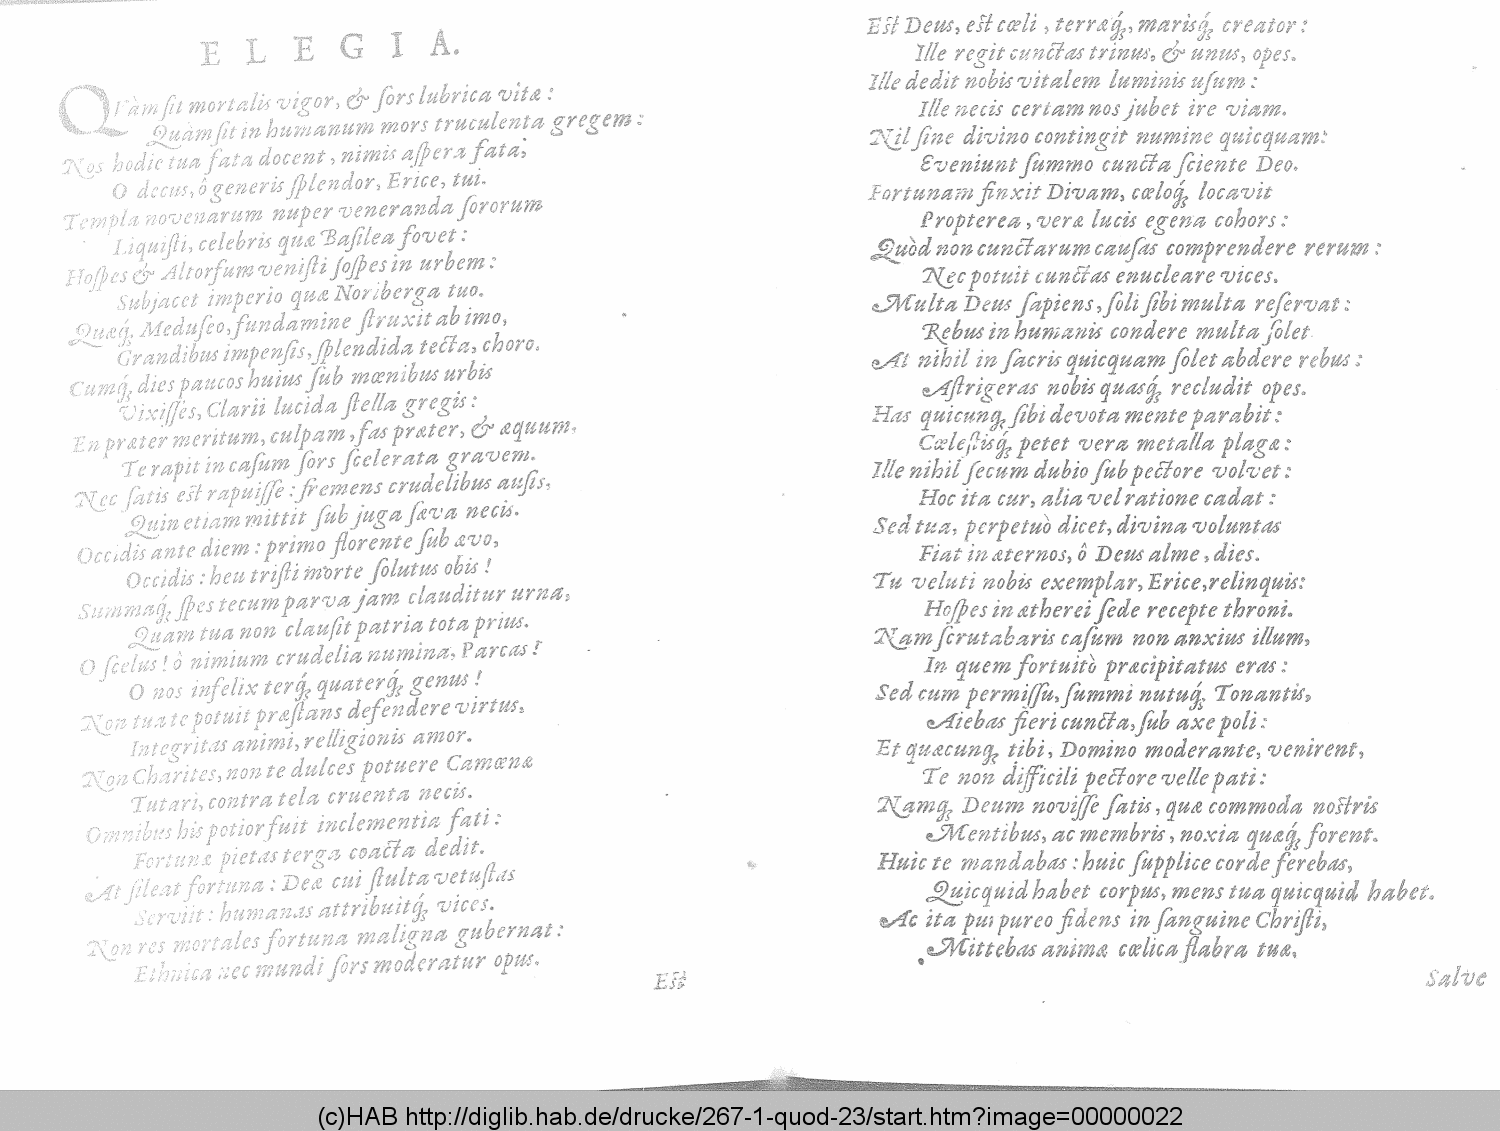 ELEGIA.
Quàm ſit mortalis vigor, & ſors lubrica vitæ:
Quàm ſit in humanum mors truculenta gregem:
Nos hodie tua fata docent, nimis aſpera fata,
O decus, ô generis ſplendor, Erice, tui.
Templa novenarum nuper veneranda ſororum
Liquiſti, celebris quæ Baſilea fovet:
Hoſpes & Altorfum veniſti ſoſpes in urbem:
Subjacet imperio quæ Noriberga tuo.
Quæq́; Meduſeo, fundamine ſtruxit ab imo,
Grandibus impenſis, ſplendida tecta, choro.
Cumq́; dies paucos huius ſub mœnibus urbis
Vixiſſes, Clarii lucida ſtella gregis:
En præter meritum, culpam, fas præter, & æquum,
Te rapit in caſum ſors ſcelerata gravem.
Nec ſatis est rapuiſſe: fremens crudelibus auſis,
Quin etiam mittit ſub juga ſæva necis.
Occidis ante diem: primo florente ſub ævo,
Occidis: heu triſti morte ſolutus obis!
Summaq́; ſpes tecum parva jam clauditur urna,
Quam tua non clauſit patria tota prius.
O ſcelus! ò nimium crudelia numina, Parcas!
O nos infelix terq́; quaterq́; genus!
Non tua te potuit præſtans defendere virtus,
Integritas animi, relligionis amor.
Non Charites, non te dulces potuere Camœnæ
Tutari, contra tela cruenta necis.
Omnibus his potior fuit inclementia fati:
Fortunæ pietas terga coacta dedit.
At ſileat fortuna: Deæ cui ſtulta vetuſtas
Serviit: humanas attribuitq́; vices.
Non res mortales fortuna maligna gubernat:
Ethnica nec mundi ſors moderatur opus.
Est
Est Deus, est cœli, terræq́;, marisq́; creator:
Ille regit cunctas trinus, & unus, opes.
Ille dedit nobis vitalem luminis uſum:
Ille necis certam nos jubet ire viam.
Nil ſine divino contingit numine quicquam:
Eveniunt ſummo cuncta ſciente Deo.
Fortunam finxit Divam, cœloq́; locavit
Propterea, veræ lucis egena cohors:
Quòd non cunctarum cauſas comprendere rerum:
Nec potuit cunctas enucleare vices.
Multa Deus ſapiens, ſoli ſibi multa reſervat:
Rebus in humanis condere multa ſolet.
At nihil in ſacris quicquam ſolet abdere rebus:
Aſtrigeras nobis quasq́; recludit opes.
Has quicunq; ſibi devota mente parabit:
Cœleſtisq́; petet vera metalla plagæ:
Ille nihil ſecum dubio ſub pectore volvet:
Hoc ita cur, alia vel ratione cadat:
Sed tua, perpetuò dicet, divina voluntas
Fiat in æternos, ô Deus alme, dies.
Tu veluti nobis exemplar, Erice, relinquis:
Hoſpes in ætherei ſede recepte throni.
Nam ſcrutabaris caſum non anxius illum,
In quem fortuitò præcipitatus eras:
Sed cum permiſſu, ſummi nutuq́; Tonantis,
Aiebas fieri cuncta, ſub axe poli:
Et quæcunq; tibi, Domino moderante, venirent,
Te non difficili pectore velle pati:
Namq́; Deum noviſſe ſatis, quæ commoda nostris
Mentibus, ac membris, noxia quæq́; forent.
Huic te mandabas: huic ſupplice corde ferebas,
Quicquid habet corpus, mens tua quicquid habet.
Ac ita purpureo fidens in ſanguine Chriſti,
Mittebas animæ cœlica flabra tuæ,
Salve
(c)HAB http://diglib.hab.de/drucke/267-1-quod-23/start.htm?image=00000022